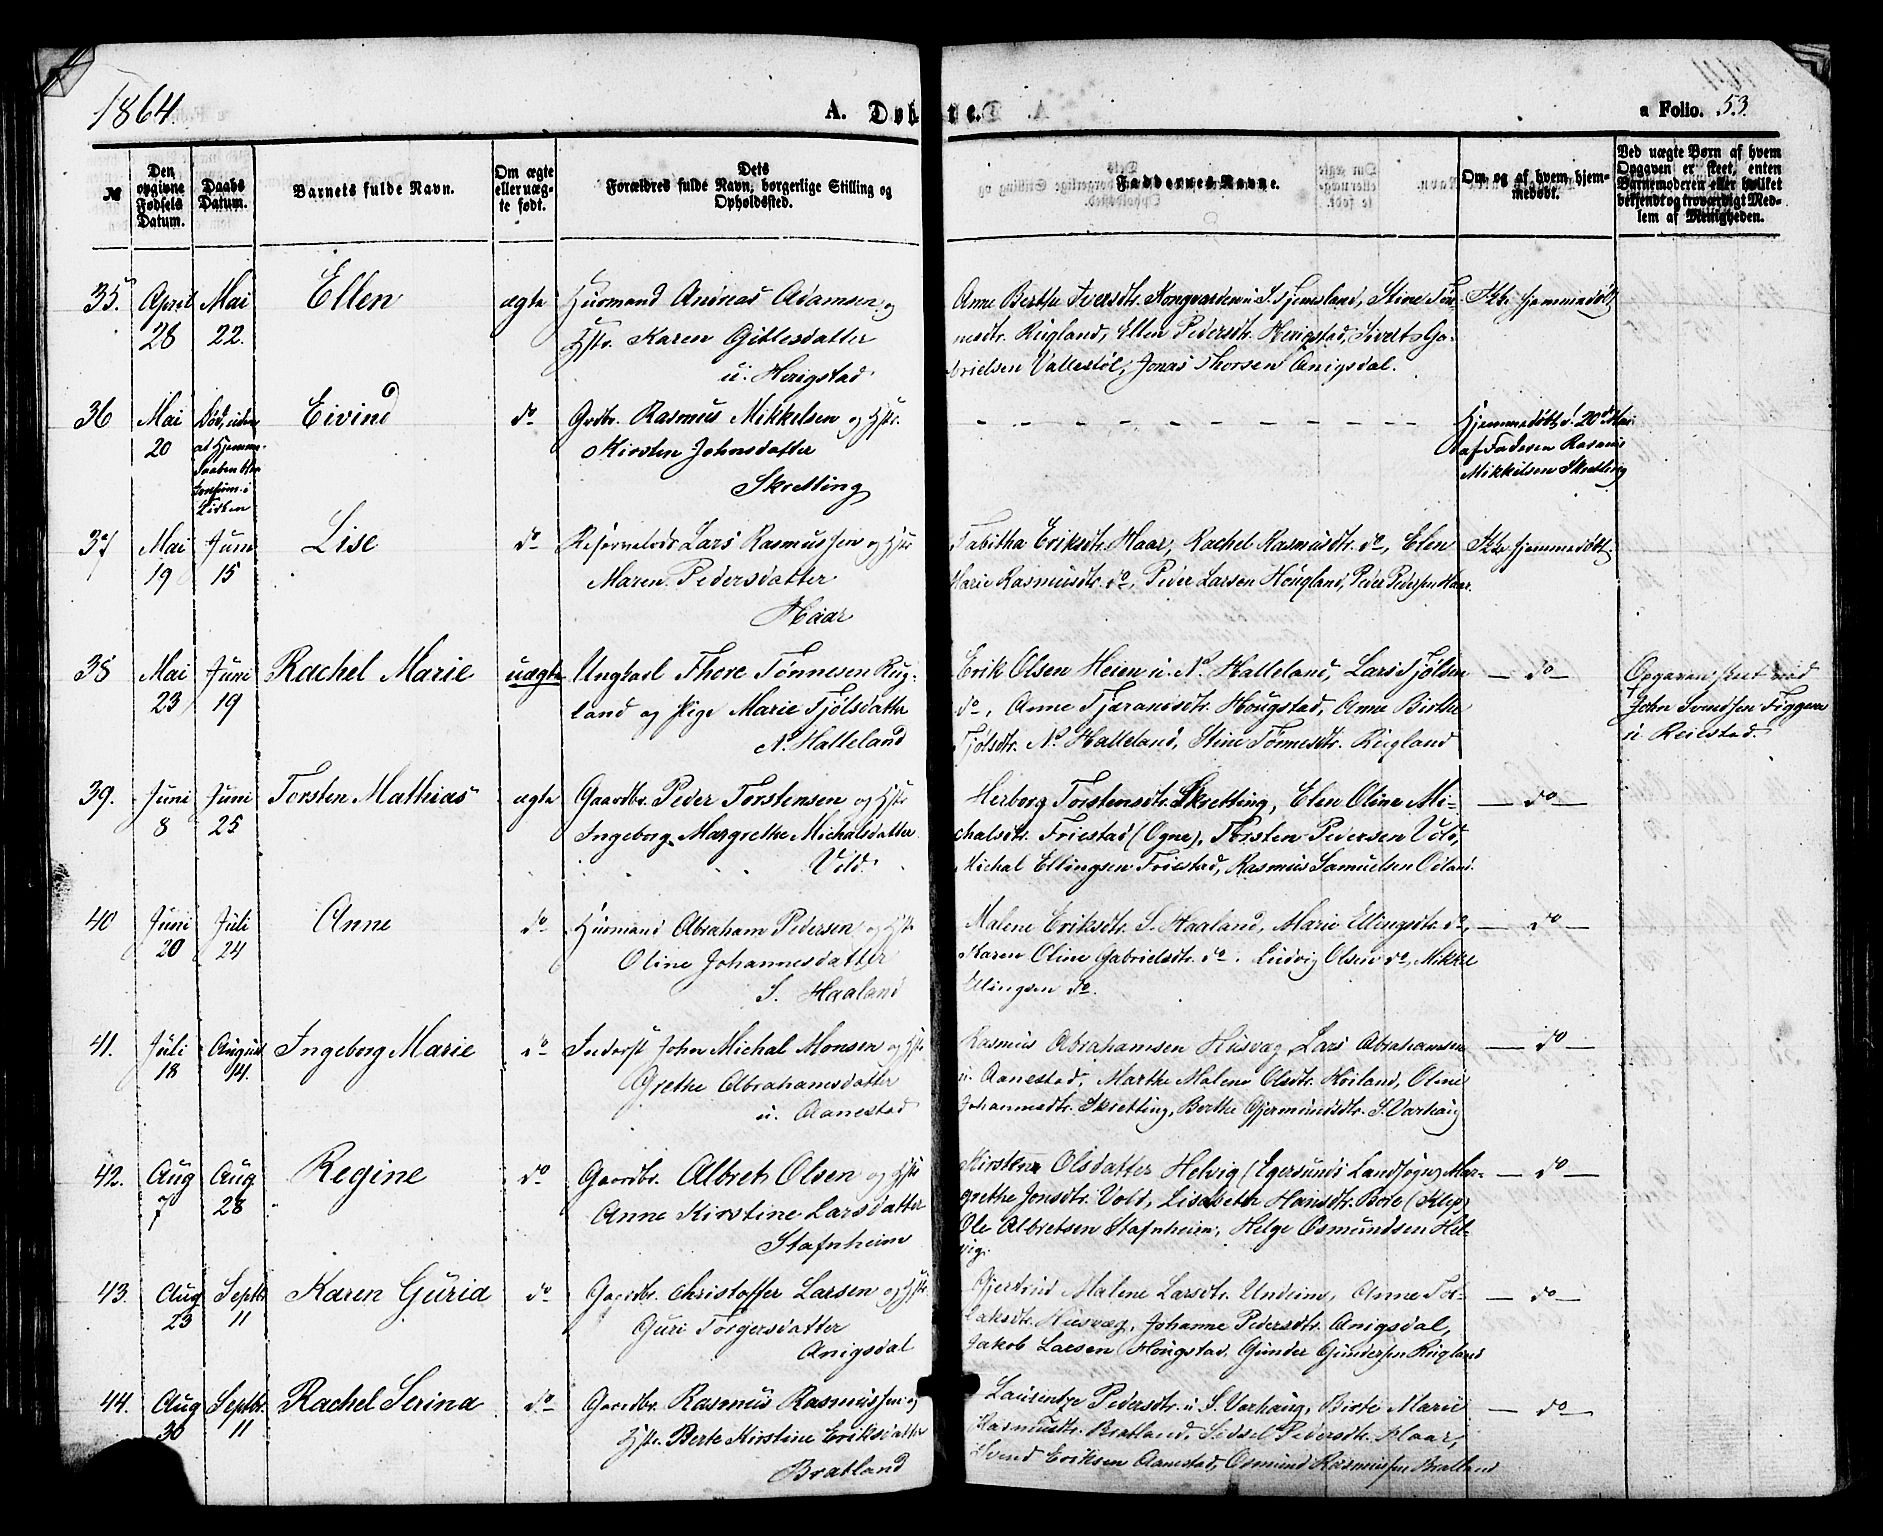 1864.
A. Døbte.
a Folio. 53.
№
Den opgivne Fødsels Datum.
Daabs Datum.
Barnets fulde Navn.
Om ægte eller uægte født.
Dets Forældres fulde Navn, borgerlige Stilling og Opholdssted.
Faddernes Navne.
Om og af hvem hjemmedøbt.
Ved uægte Børn af hvem Opgaven er skeet, enten Barnemoderen eller hvilket bekjendt og troværdigt Medlem af Menigheden.
35. April 28 Mai 22. Ellen ægte
Huusmand Andreas Adamsen og
Hstr. Karen Gittlesdatter
u. Herigstad
Anne Berthe Iversdtr. Kongvarden u. S. Fjemsland, Stine Tøn-
nesdtr. Rügland, Ellen Pedersdtr. Herigstad, Sivert Ga-
brielsen Vallestøl, Jonas Thorsen Anigsdal.
Ikke hjemmedøbt
36 Mai 20
Død, uden
at Hjemme-
Daaben blev
confirm. i
Kirken
Eivind do
Grdbr. Rasmus Mikkelsen og Hstr.
Kirsten Johnsdatter
Skretting
Hjemmedøbt d. 20de Mai
af Faderen Rasmus
Mikkelsen Skretting
37 Mai 19 Juni 15 Lise do
Lars Rasmussen og Hstr
Maren Pedersdatter
Haar
Tabitha Eriksdtr. Haar, Rachel Rasmusdtr. do, Elen
Marie Rasmusdtr. do, Peder Larsen Hougland, Peder Pedersen Haar.
Ikke hjemmedøbt
38 Mai 23 Juni 19 Rachel Marie uægte
Ungkarl Thore Tønnesen Rug-
land og Pige Marie Tjølsdatter
N. Halleland
Erik Olsen Heien u. No. Halleland, Lars Tjølsen
do, Anne Tjæransdtr. Hougstad, Anne Birthe
Tjølsdtr. No. Halleland, Stine Tønnesdtr. Rügland
— do —
Opgaven skeet ved
John Svendsen
u. Reiestad.
39. Juni 8 Juni 25 Torsten Mathias ægte
Gaardbr. Peder Torstensen og Hstr
Ingeborg Margrethe Michalsdatter
Vold.
Herborg Torstensdtr. Skretting, Elen Oline Mi-
chalsdtr. Friestad (Ogne), Torsten Pedersen Vold,
Michal Ellingsen Friestad, Rasmus Samuelsen Odland.
— do —
40 Juni 20 Juli 24 Anne do
Huusmand Abraham Pedersen og Hstr
Oline Johannesdatter
S. Haaland
Malene Eriksdtr. S. Haaland, Marie Ellingsdtr. do,
Karen Oline Gabrielsdtr. do. Ludvig Olsen do, Mikkel
Ellingsen do.
— do —
41. Juli 18 August 14. Ingeborg Marie do
Inderst John Michal Monsen og Hstr
Grethe Abrahamsdatter
u. Aanestad
Rasmus Abrahamsen Husvæg, Lars Abrahamsen
u. Aanestad, Marthe Malene Olsdtr. Høiland, Oline
Johannesdtr. Skretting, Berthe Gjermundsdtr. S. Varhaug
— do —
42. Aug 7 Aug 28 Regine do
Gaardbr. Albret Olsen og Hstr
Anne Kirstine Larsdatter
Stafnheim
Kirstene Olsdatter Helvig (Egersunds Landsogn) Mar-
grethe Jonsdtr. Vold, Lisabeth Hansdtr. Bore (Klep)
Ole Albretsen Stafnheim, Helge Osmundsen Hel-
vig.
— do —
43. Aug 23 Septbr 11 Karen Gurid do
Gaardbr. Christoffer Larsen og Hstr.
Guri Torgersdatter
Anigsdal
Gjertrud Malene Larsdtr. Undeim, Anne Tor-
laksdtr. Husvæg, Johanne Pedersdtr. Anigsdal,
Jakob Larsen Hougstad, Gunder Gundersen Rügland
— do —
44. Aug 30 Septbr. 11 Rachel Serina do
Gaardbr. Rasmus Rasmussen og
Hstr. Berte Kirstine Eriksdatter
Bratland
Laurentze Pedersdtr. u. S. Varhaug, Birte Marie
Rasmusdtr. Bratland, Sidsel Pedersdtr. Haar,
Svend Eriksen Aanestad, Osmund Rasmussen Bratland
— do —